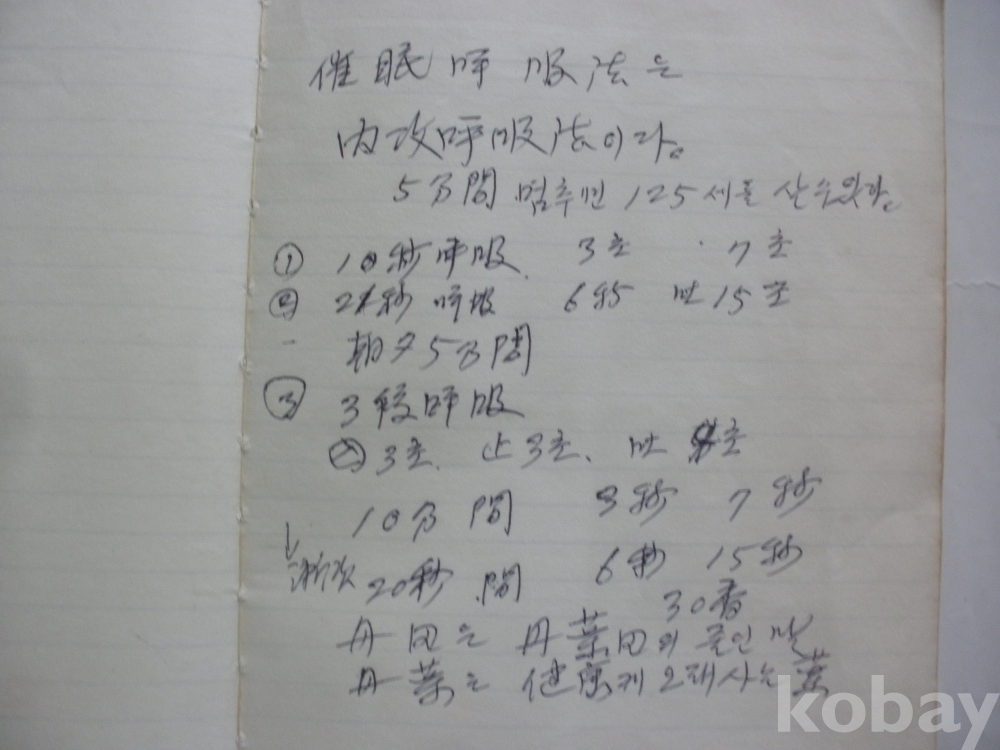 催眠呼吸法은
内攻呼吸法이다.
5分間 멈추면 125세를 살 수 있다.
① 10秒呼吸. 3초 · 7초
② 21秒呼吸 6秒 吐 15초
- 朝夕 5分間
③ 3段呼吸
入 3초. 止 3초、吐 초
10分間 3秒 7秒
↓ 漸次 20秒 間 6秒 15秒
30番
丹田은 丹藥田의 줄인 말
丹藥는 健康케 오래 사는 藥
kobay